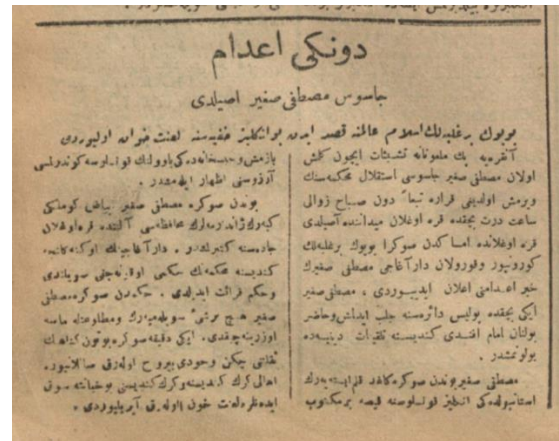 دونكى اعدام
جاسوس مصطفى صغير اصيلدى
بويوك بر غلبه لك اسلام عالمنه قصد ايدن بو انكليز خفيه سنه لعنت خوان اوليوردى
آنقره يه پك ملعونانه تشبثات ايچون كلش
اولان مصطفى صغير جاسوسى استقلال محكمه سنك
ويرمش اولدينى قراره تبعاً دون صباح زوالى
ساعت درت بچقده قره اوغلان ميداننده آصيلدى
قره اوغلانده امساكدن صوكرا بويوك برغلبه لك
كورونيور وقورولان دارآغاجى مصطفى صغيرك
خبر اعدامنى اعلان ايديبوردى . مصطفى صغير
ايكى بچقده پوليس دائره سنه جلب ايدلمش وحاضر
بولنان امام افندى كنديسنه تلقينات دينيه ده
بولونمشدر .
مصطفى صغير بوندن صوكره كاغد قلم ايسته يه رك
استانبولده كى انكليز قونسلوسنه قيصه بر مكتوب
يازمش وجسخانه ده كى باوولنك قونسلوسه كوندرلمسى
آرزوسنى اظهار ايله مشدر .
بوندن صوكره مصطفى صغير بياض كوملكى
كيه رك ژاندارمه لرك محافظه سى آلتنده قره اوغلان
جاده سنه كتيرلدى . دارآغاجينك اوكنده
كنديسنه محكمه نك حكمى اوقونه جغى سويلندى
وحكم قرائت ايدلدى . حكمدن صوكره مصطفى
صغير هيچ برشى سويله ميه رك ومطاوعتله ماصه
اوزرينه چيقدى . ايكى دقيقه صوكره بوتون كناهلرك
ثقلتى چكن وجودى بيروح اوله رق صاللانيور .
اهالى كرك كنديسنه وكرك كنديسنى بو خيانته سوق
ايدنلره لعنت خوان اوله رق آيريلييوردى .